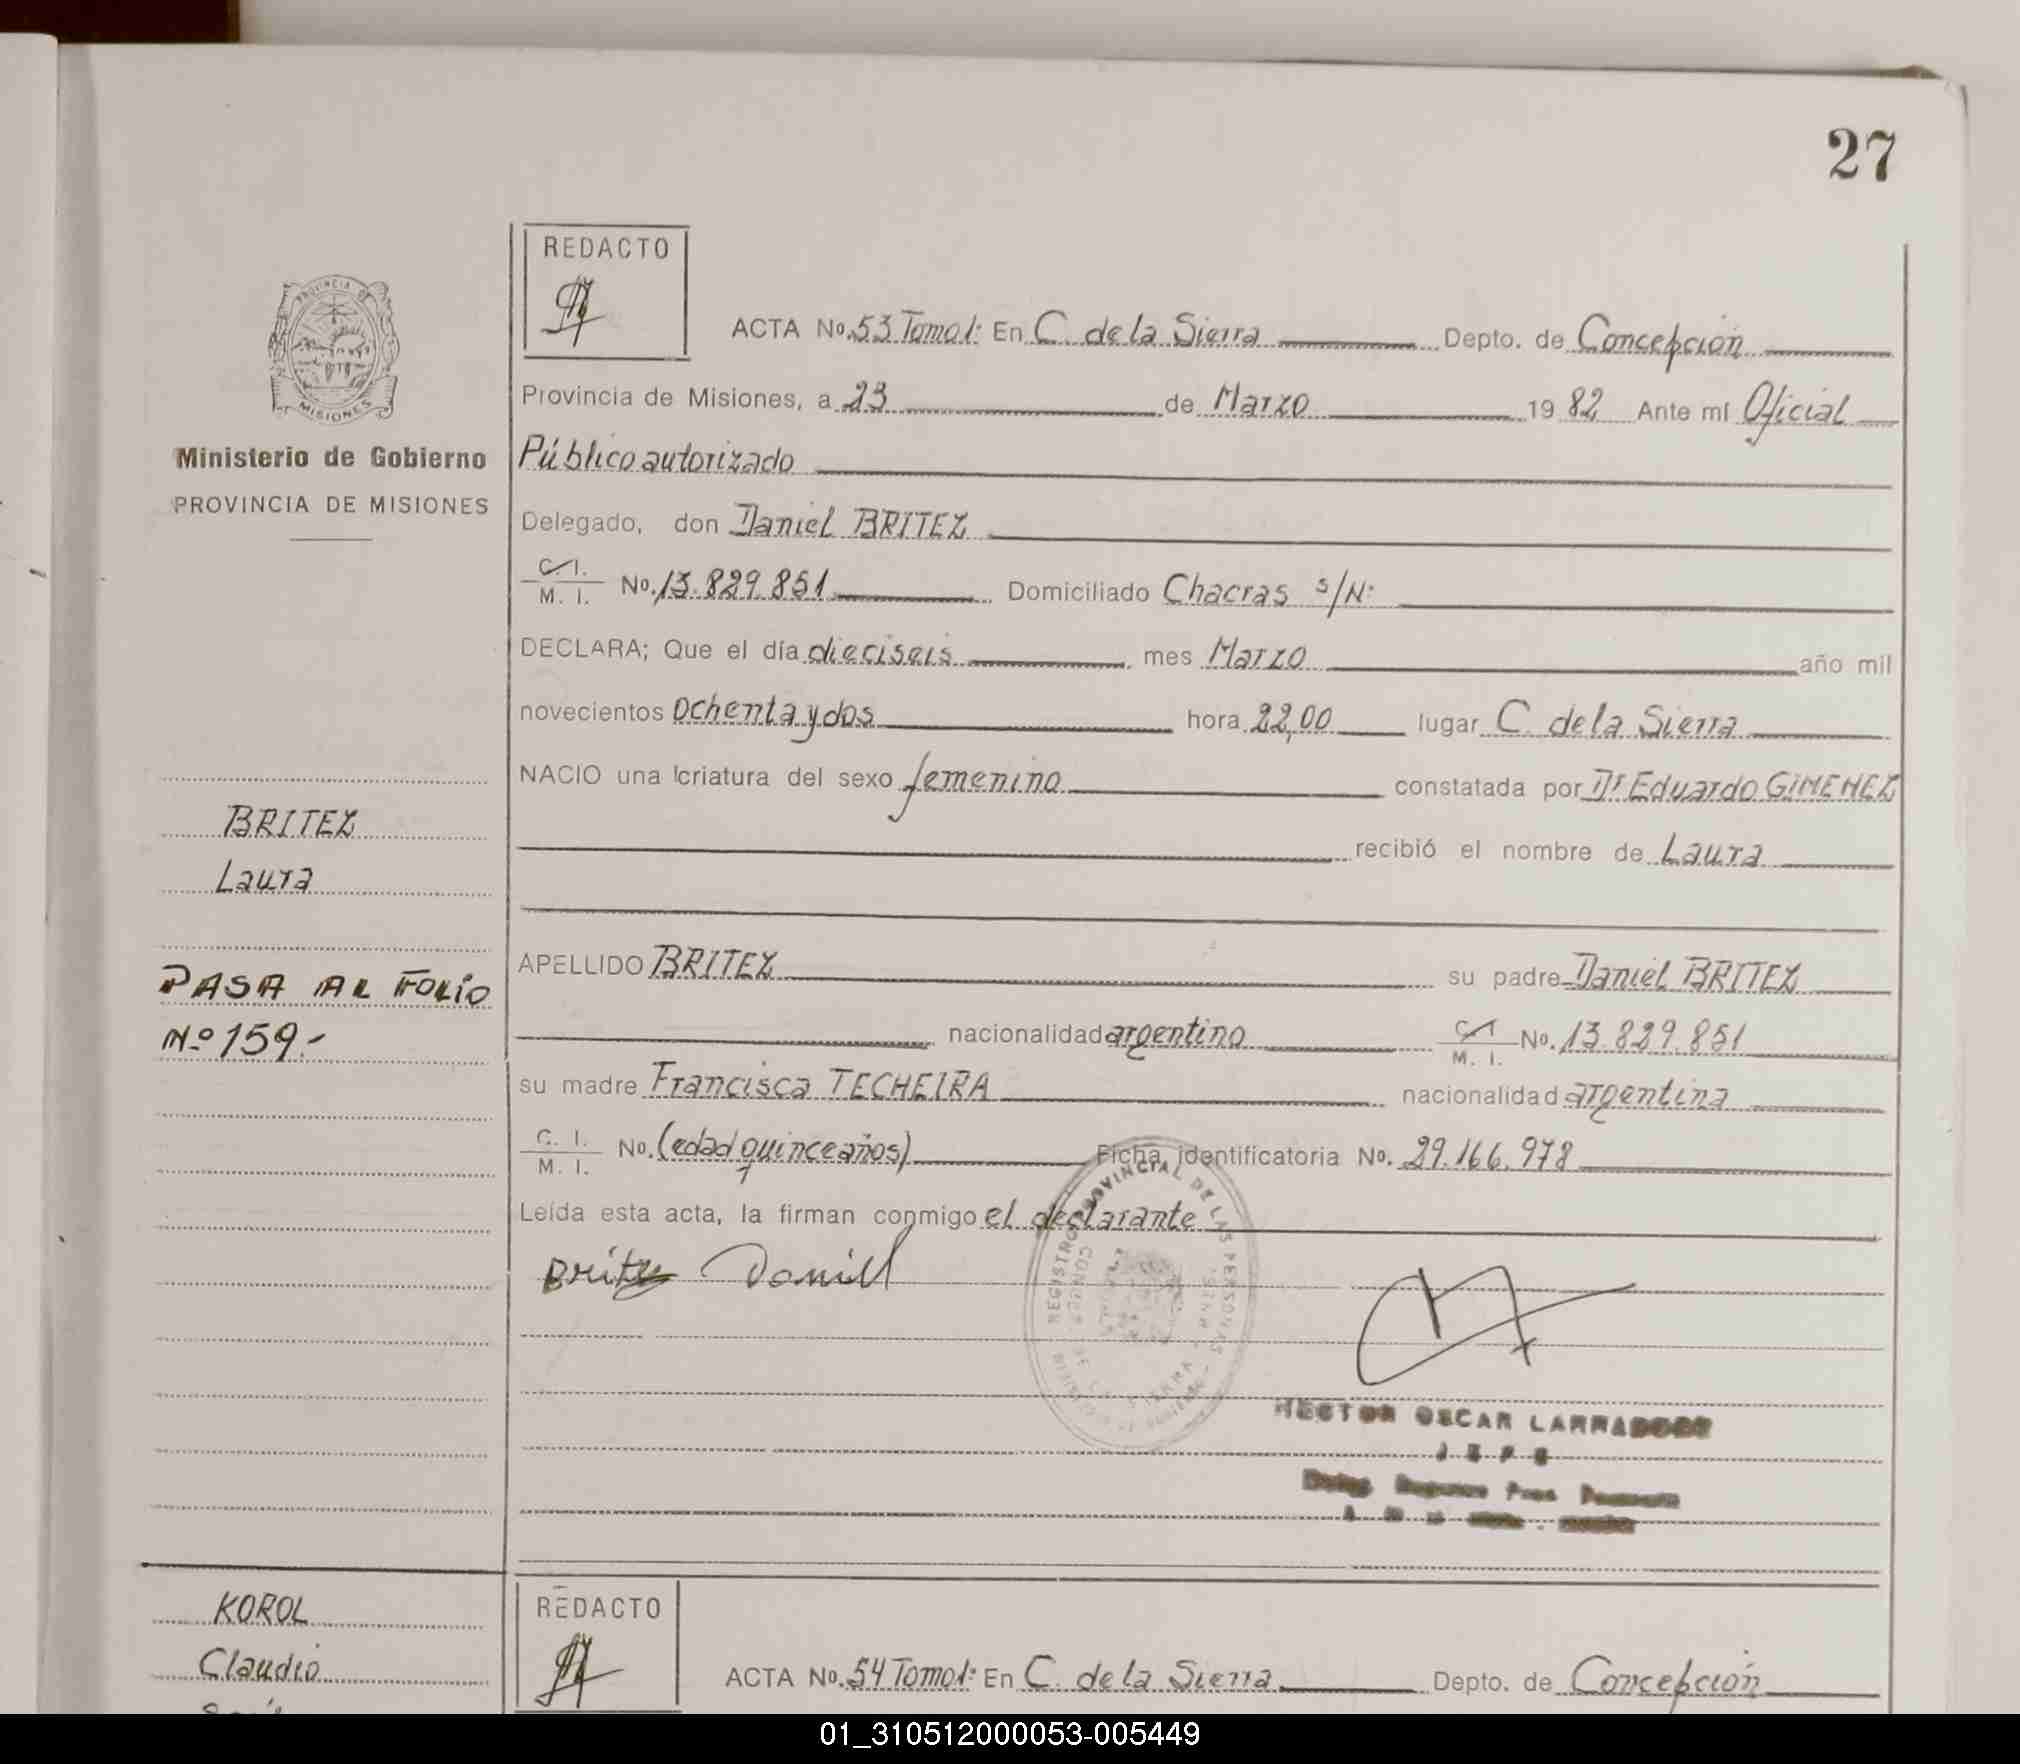 27
REDACTO
ACTA No. 53 Tomo 1: En C. de la Sierra Depto. de Concepción
Provincia de Misiones, a 23 de Marzo 19 82 Ante mí Oficial
Público autorizado
Delegado, don Daniel BRITEZ
C. I. / M. I. No. 13.829.851 Domiciliado Chacras s/N:
DECLARA; Que el día dieciseis mes Marzo año mil
novecientos Ochenta y dos hora 22,00 lugar C. de la Sierra
NACIO una criatura del sexo femenino constatada por Dr Eduardo GIMENEZ
recibió el nombre de Laura
APELLIDO BRITEZ su padre Daniel BRITEZ
nacionalidad argentino C. I. / M. I. No. 13.829.851
su madre Francisca TECHEIRA nacionalidad argentina
C. I. / M. I. No. (edad quince años) Ficha identificatoria No. 29.166.978
Leída esta acta, la firman conmigo el declarante
Britez Daniel
REGISTRO PROVINCIAL DE LAS PERSONAS
HECTOR OSCAR
JEFE
PROVINCIA DE
MISIONES
Ministerio de Gobierno
PROVINCIA DE MISIONES
BRITEZ
Laura
PASA AL FOLIO
Nº 159.-
KOROL
Claudio
REDACTO
ACTA No. 54 Tomo 1: En C. de la Sierra Depto. de Concepción
01_310512000053-005449